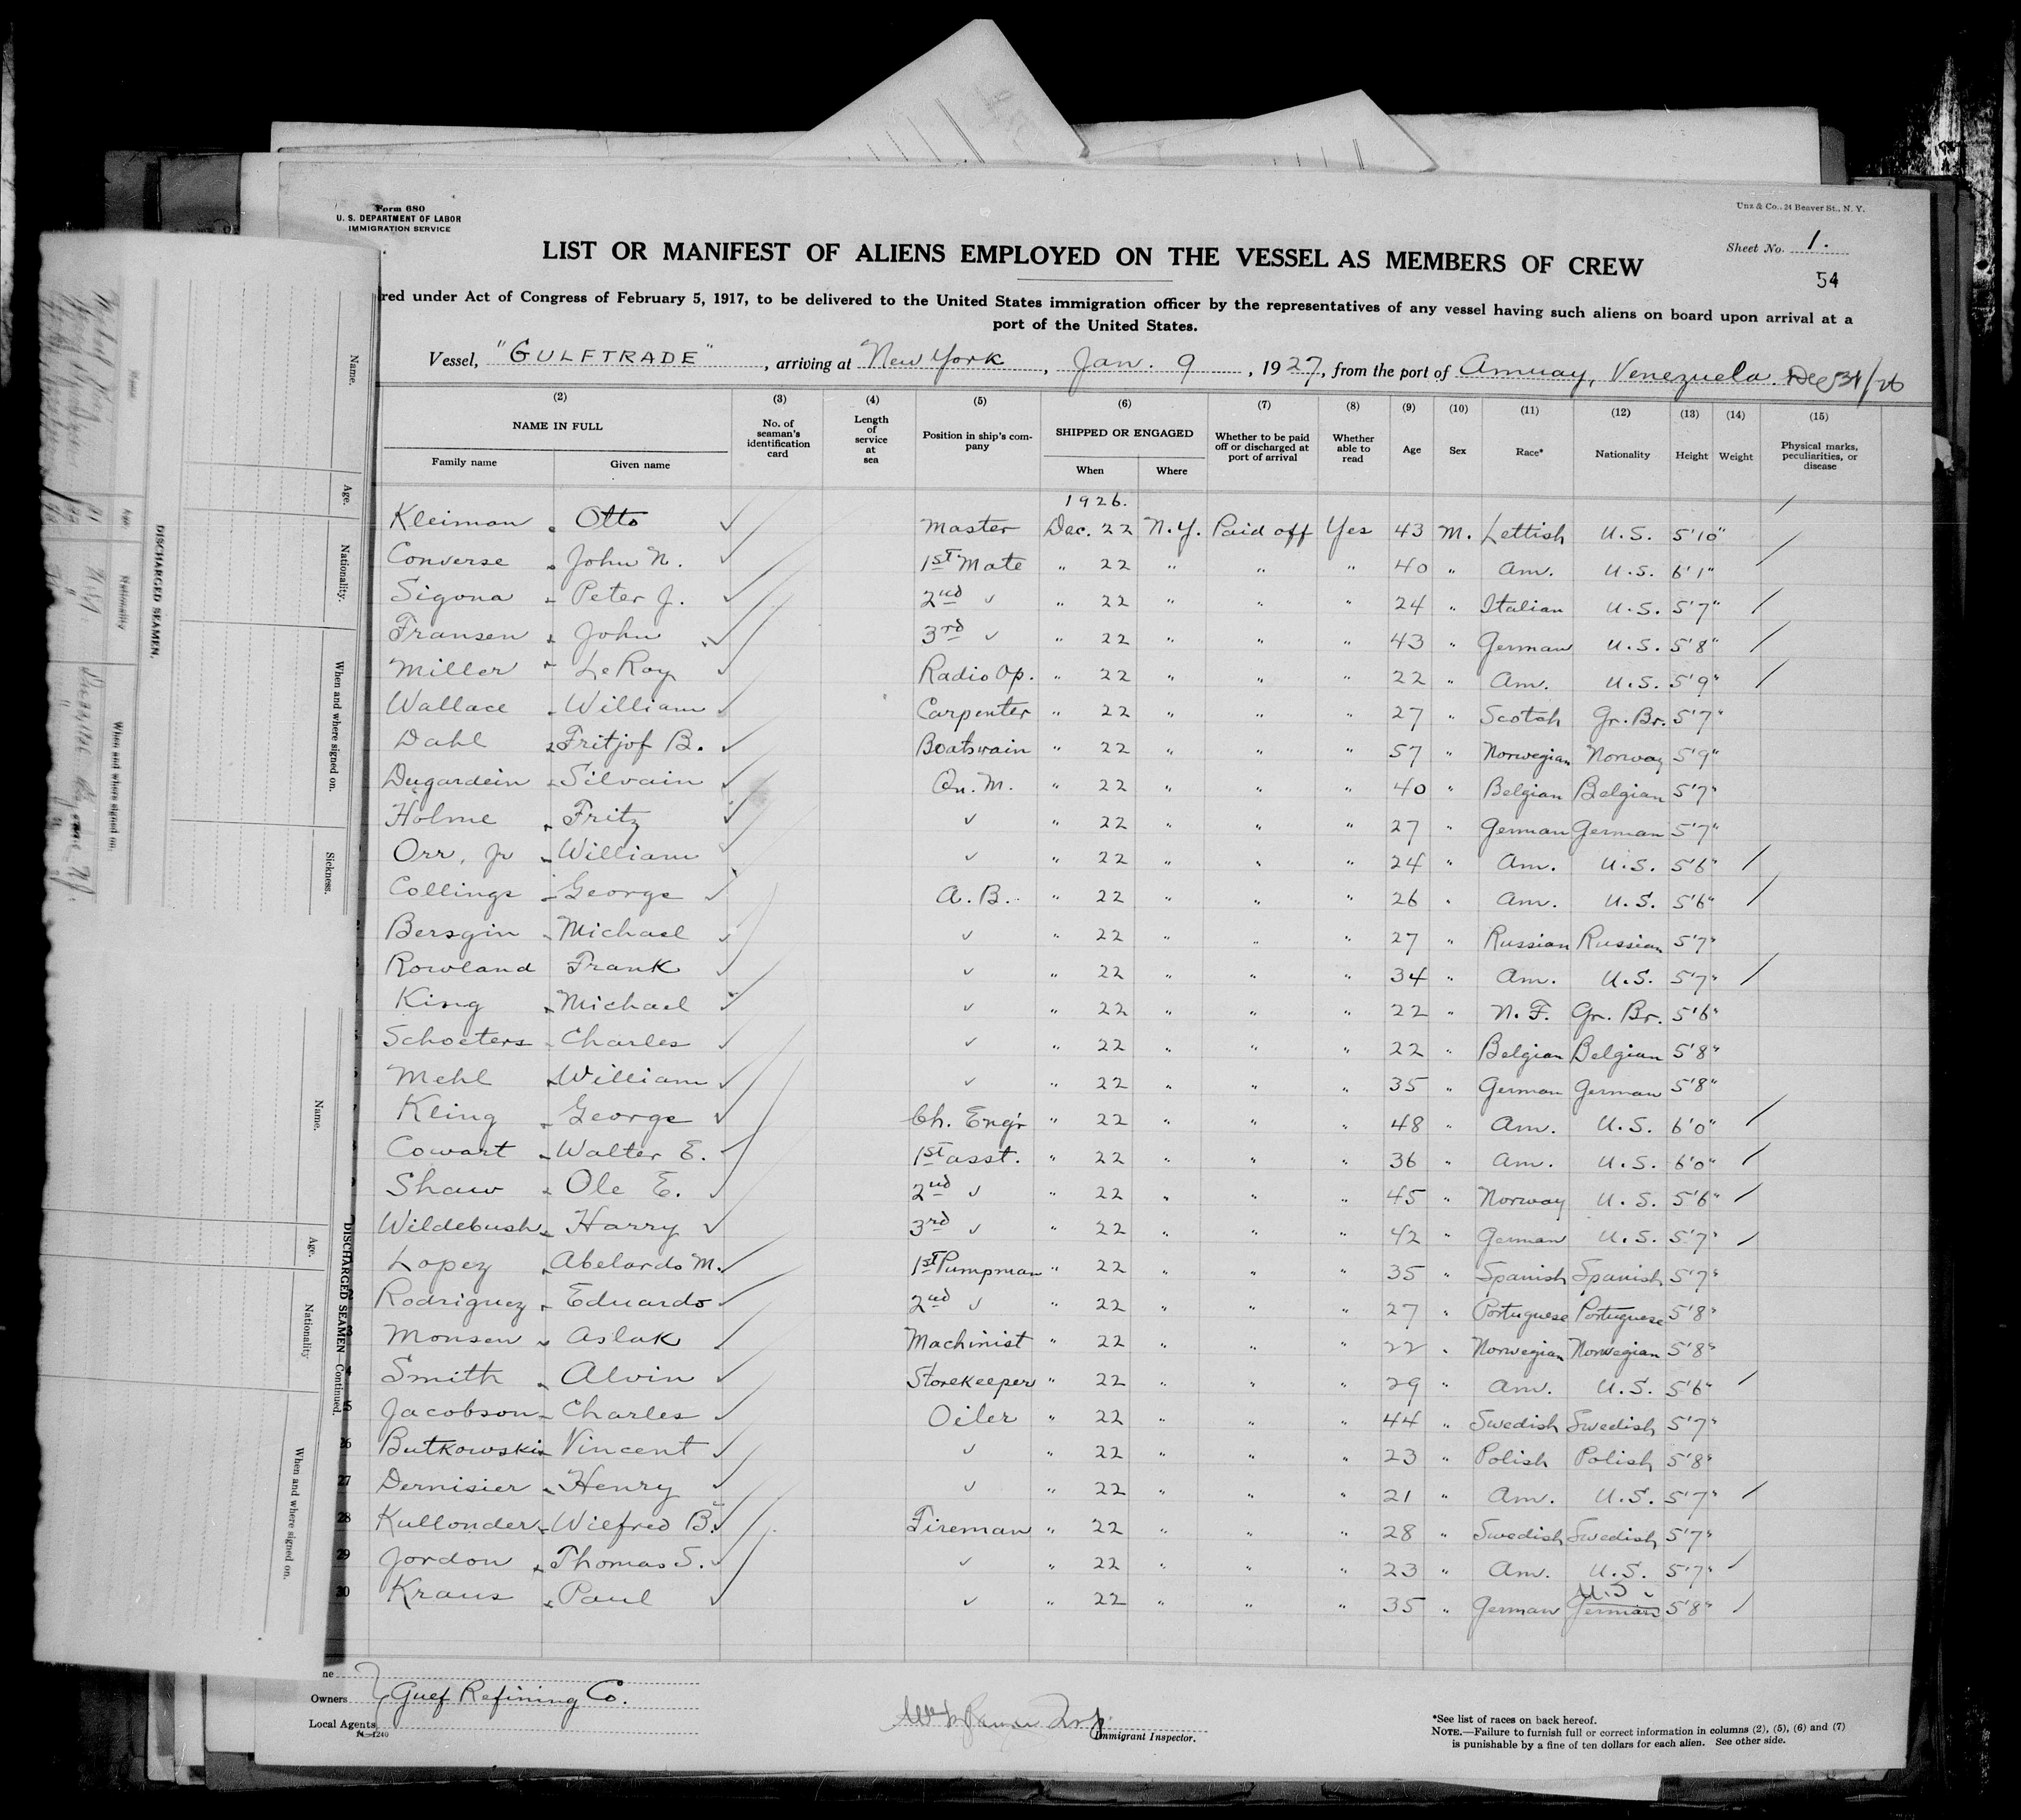 Form 680
U. S. DEPARTMENT OF LABOR
IMMIGRATION SERVICE
Unz & Co., 24 Beaver St., N. Y.
Sheet No. 1.
54
LIST OR MANIFEST OF ALIENS EMPLOYED ON THE VESSEL AS MEMBERS OF CREW
red under Act of Congress of February 5, 1917, to be delivered to the United States immigration officer by the representatives of any vessel having such aliens on board upon arrival at a
port of the United States.
Vessel, "GULFTRADE", arriving at New York, Jan. 9, 1927, from the port of Amuay, Venezuela. Dec 31/26
(2) (3) (4) (5) (6) (7) (8) (9) (10) (11) (12) (13) (14) (15)
NAME IN FULL No. of seaman's identification card Length of service at sea Position in ship's company SHIPPED OR ENGAGED Whether to be paid off or discharged at port of arrival Whether able to read Age Sex Race* Nationality Height Weight Physical marks, peculiarities, or disease
Family name Given name When Where
1926.
Kleiman Otto Master Dec. 22 N.Y. Paid off Yes 43 M. Lettish U.S. 5'10"
Converse John N. 1st Mate " 22 " " " 40 " Am. U.S. 6'1"
Sigona Peter J. 2nd ✓ " 22 " " " 24 " Italian U.S. 5'7"
Fransen John 3rd ✓ " 22 " " " 43 " German U.S. 5'8"
Miller LeRoy Radio Op. " 22 " " " 22 " Am. U.S. 5'9"
Wallace William Carpenter " 22 " " " 27 " Scotch Gr. Br. 5'7"
Dahl Fritjof B. Boatswain " 22 " " " 57 " Norwegian Norway 5'9"
Dugardein Silvain Qu. M. " 22 " " " 40 " Belgian Belgian 5'7"
Holme Fritz ✓ " 22 " " " 27 " German German 5'7"
Orr, Jr William ✓ " 22 " " " 24 " Am. U.S. 5'6"
Collings George A.B. " 22 " " " 26 " Am. U.S. 5'6"
Bersgin Michael ✓ " 22 " " " 27 " Russian Russian 5'7"
Rowland Frank ✓ " 22 " " " 34 " Am. U.S. 5'7"
King Michael ✓ " 22 " " " 22 " N.F. Gr. Br. 5'6"
Schoeters Charles ✓ " 22 " " " 22 " Belgian Belgian 5'8"
Mehl William ✓ " 22 " " " 35 " German German 5'8"
Kling George Ch. Engr " 22 " " " 48 " Am. U.S. 6'0"
Cowart Walter E. 1st asst. " 22 " " " 36 " Am. U.S. 6'0"
Shaw Ole E. 2nd ✓ " 22 " " " 45 " Norway U.S. 5'6"
Wildebush Harry 3rd ✓ " 22 " " " 42 " German U.S. 5'7"
Lopez Abelardo M. 1st Pumpman " 22 " " " 35 " Spanish Spanish 5'7"
Rodriguez Eduardo 2nd ✓ " 22 " " " 27 " Portuguese Portuguese 5'8"
Monsen Aslak Machinist " 22 " " " 22 " Norwegian Norwegian 5'8"
Smith Alvin Storekeeper " 22 " " " 29 " Am. U.S. 5'6"
Jacobson Charles Oiler " 22 " " " 44 " Swedish Swedish 5'7"
26 Butkowski Vincent ✓ " 22 " " " 23 " Polish Polish 5'8"
27 Dernisier Henry ✓ " 22 " " " 21 " Am. U.S. 5'7"
28 Kullonder Wilfred B. Fireman " 22 " " " 28 " Swedish Swedish 5'7"
29 Jordon Thomas S. ✓ " 22 " " " 23 " Am. U.S. 5'7"
30 Kraus Paul ✓ " 22 " " " 35 " German German U.S. 5'8"
Owners Gulf Refining Co.
Local Agents
14—1240
Immigrant Inspector.
*See list of races on back hereof.
NOTE.—Failure to furnish full or correct information in columns (2), (5), (6) and (7)
is punishable by a fine of ten dollars for each alien. See other side.
DISCHARGED SEAMEN.
Name. Age. Nationality. When and where signed on. Sickness.
Name Age Nationality When and where signed on.
DISCHARGED SEAMEN—Continued.
Name. Age. Nationality When and where signed on.